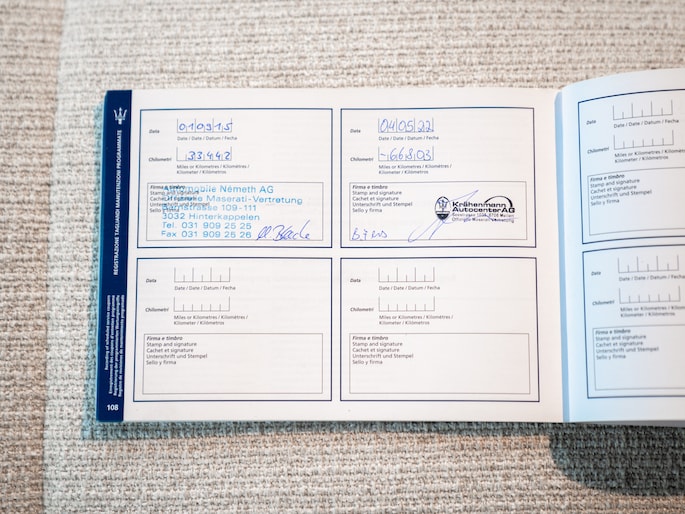 REGISTRAZIONE TAGLIANDI MANUTENZIONI PROGRAMMATE
Recording of scheduled service coupons
108
Data
010915
Date / Date / Datum / Fecha
Chilometri
33442
Miles or Kilometres / Kilomètres /
Kilometer / Kilómetros
Firma e timbro
Stamp and signature
Cachet et signature
Unterschrift und Stempel
Sello y firma
Automobile Németh AG
Maserati-Vertretung
109-111
3032 Hinterkappelen
Tel. 031 909 25 25
Fax 031 909 25 26
Data
040522
Date / Date / Datum / Fecha
Chilometri
-66803
Miles or Kilometres / Kilomètres /
Kilometer / Kilómetros
Firma e timbro
Stamp and signature
Cachet et signature
Unterschrift und Stempel
Sello y firma
Krähenmann
Autocenter AG
Data
Date / Date / Datum / Fecha
Chilometri
Miles or Kilometres / Kilomètres /
Kilometer / Kilómetros
Firma e timbro
Stamp and signature
Cachet et signature
Unterschrift und Stempel
Sello y firma
Data
Date / Date / Datum / Fecha
Chilometri
Miles or Kilometres / Kilomètres /
Kilometer / Kilómetros
Firma e timbro
Stamp and signature
Cachet et signature
Unterschrift und Stempel
Sello y firma
Data
Date / Date / Datum / Fecha
Chilometri
Miles or Kilometres / Kilom
Kilometer / Kilómetros
Firma e timbro
Stamp and signature
Cachet et signature
Unterschrift und Stempel
Sello y firma
Data
Date / Date / Datum / Fecha
Chilometri
Miles or Kilometres / Kilo
Kilometer / Kilómetros
Firma e timbro
Stamp and signature
Cachet et signature
Unterschrift und Stempel
Sello y firma